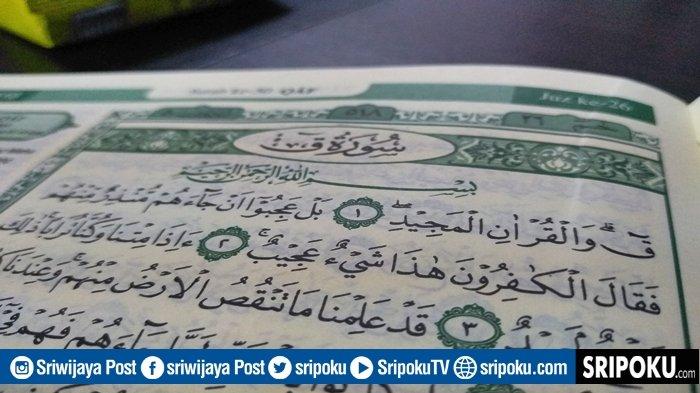 Juz ke-26
٥١٨
٢٦
سُوْرَةُ ق
بِسْمِ اللّٰهِ الرَّحْمٰنِ الرَّحِيْمِ
قۤ ۗوَالْقُرْاٰنِ الْمَجِيْدِۖ ١ بَلْ عَجِبُوْٓا اَنْ جَاۤءَهُمْ مُّنْذِرٌ مِّنْهُمْ
فَقَالَ الْكٰفِرُوْنَ هٰذَا شَيْءٌ عَجِيْبٌۚ ٢ ءَاِذَا مِتْنَا وَكُنَّا تُرَابًاۚ ذٰلِكَ
٣ قَدْ عَلِمْنَا مَا تَنْقُصُ الْاَرْضُ مِنْهُمْۚ وَعِنْدَنَا
Sriwijaya Post sriwijaya Post sripoku SripokuTV sripoku.com
SRIPOKU.com